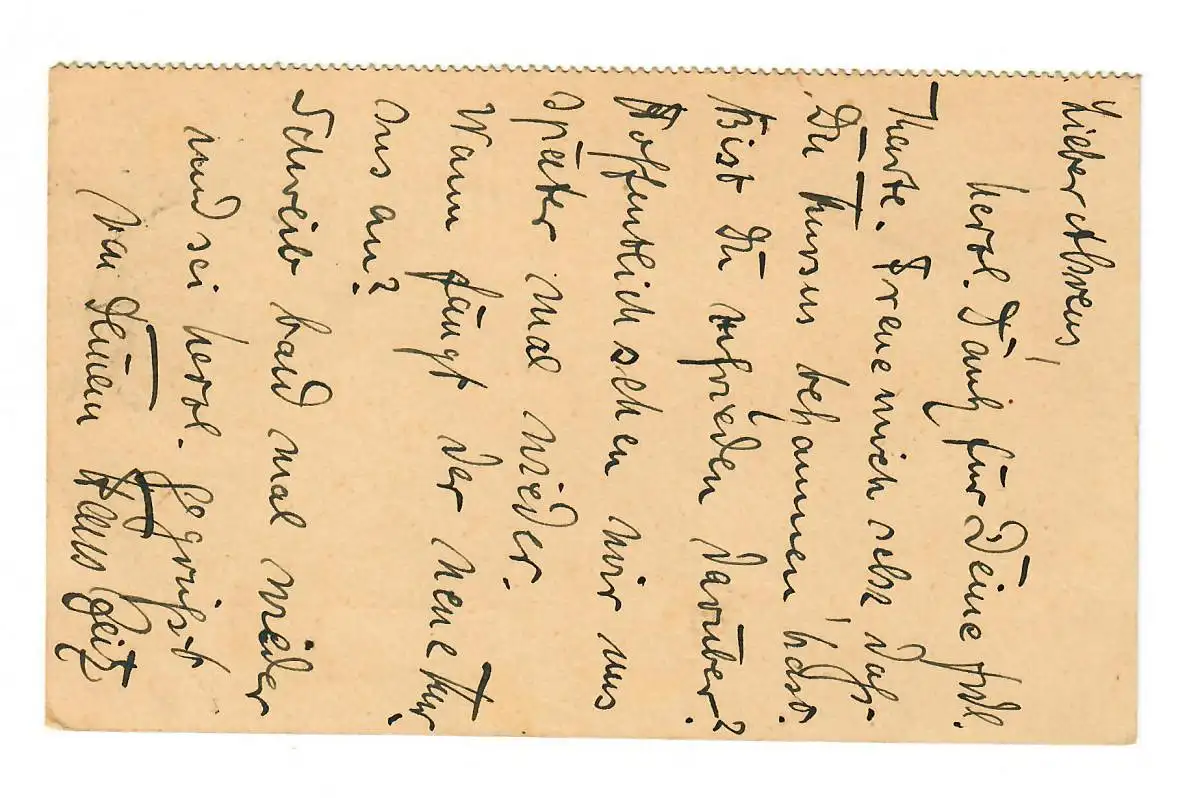 Lieber Ahrens!
herzl. Dank für Deine frdl.
Karte. Freue mich sehr, daß
Du Kursus bekommen hast.
Bist Du zufrieden darüber?
Hoffentlich sehen wir uns
später mal wieder.
Wann fängt der neue Kur-
sus an?
Schreib baud mal wieder
und sei herzl. gegrüßt
von Deinem Hans